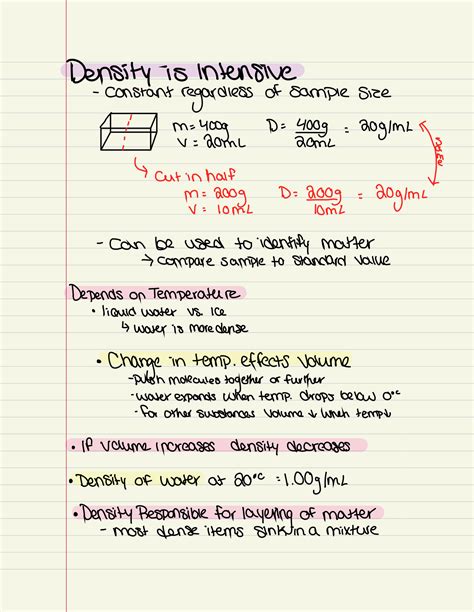 Density is Intensive
- constant regardless of sample size
m = 400g D = 400g = 20g/mL
V = 20mL 20mL
→ Cut in half
m = 200g D = 200g = 20g/mL
V = 10mL 10mL
- Can be used to identify matter
→ compare sample to standard value
Depends on Temperature
• liquid water vs. ice
↳ water is more dense
• Change in temp. effects volume
- push molecules together or further
- water expands when temp. drops below 0°C
- For other substances volume ↓ when temp ↓
• If volume increases density decreases
• Density of water at 20°C = 1.00g/mL
• Density Responsible for layering of matter
- most dense items sink in a mixture